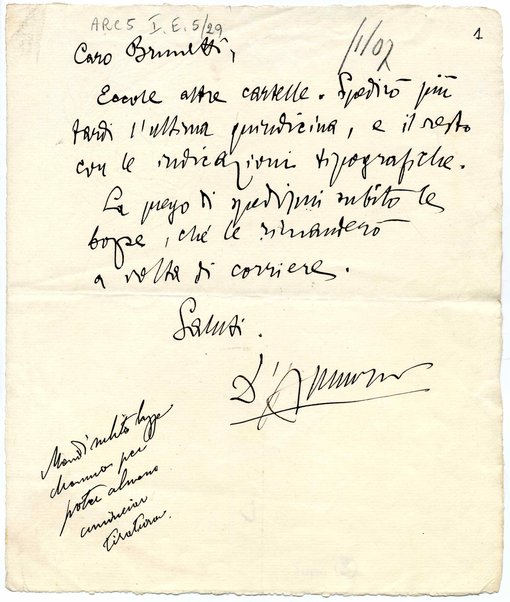 ARC 5 I. E. 5/29
1
/1/07
Caro Brunetti,
Eccole altre cartelle. Spedirò più
tardi l'ultima quindicina, e il resto
con le indicazioni tipografiche.
La prego di spedirmi subito le
bozze, ché le rimanderò
a volta di corriere.
Saluti.
D'Annunzio
Mandi subito bozze
dramma per
poter almeno
cominciar
tiratura.